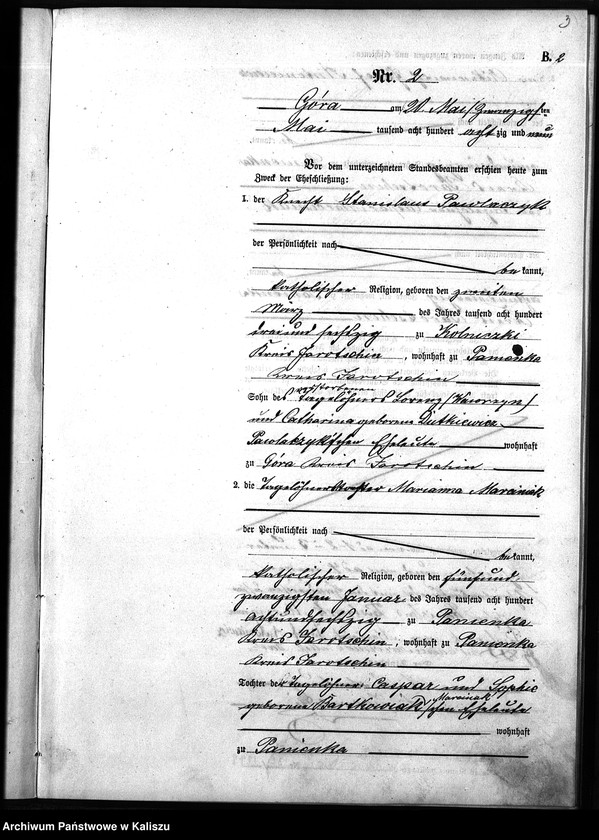 3
B. 2
Nr. 2
Góra am 20. Mai / zwanzigsten
Mai tausend acht hundert achtzig und neun
Vor dem unterzeichneten Standesbeamten erschien heute zum
Zweck der Eheschließung:
1. der Knecht Stanislaus Pawlaczyk
der Persönlichkeit nach
bekannt,
katholischer Religion, geboren den zweiten
März des Jahres tausend acht hundert
drei und sechszig zu Kolniczki
Kreis Jarotschin, wohnhaft zu Panienka
Kreis Jarotschin
verstorbenen
Sohn des Tagelöhners Lorenz / Wawrzyn /
und Catharina geborene Dutkiewicz
Pawlaczyk'schen Eheleute wohnhaft
zu Góra Kreis Jarotschin
2. die Tagelöhnertochter Marianna Marciniak
der Persönlichkeit nach
bekannt,
katholischer Religion, geboren den fünfund
zwanzigsten Januar des Jahres tausend acht hundert
achtundsechszig zu Panienka
Kreis Jarotschin, wohnhaft zu Panienka
Kreis Jarotschin
Tochter der Tagelöhner Caspar und Sophie
geborene Bartkowiak / Marciniak schen Eheleute
wohnhaft
zu Panienka
Archiwum Państwowe w Kaliszu